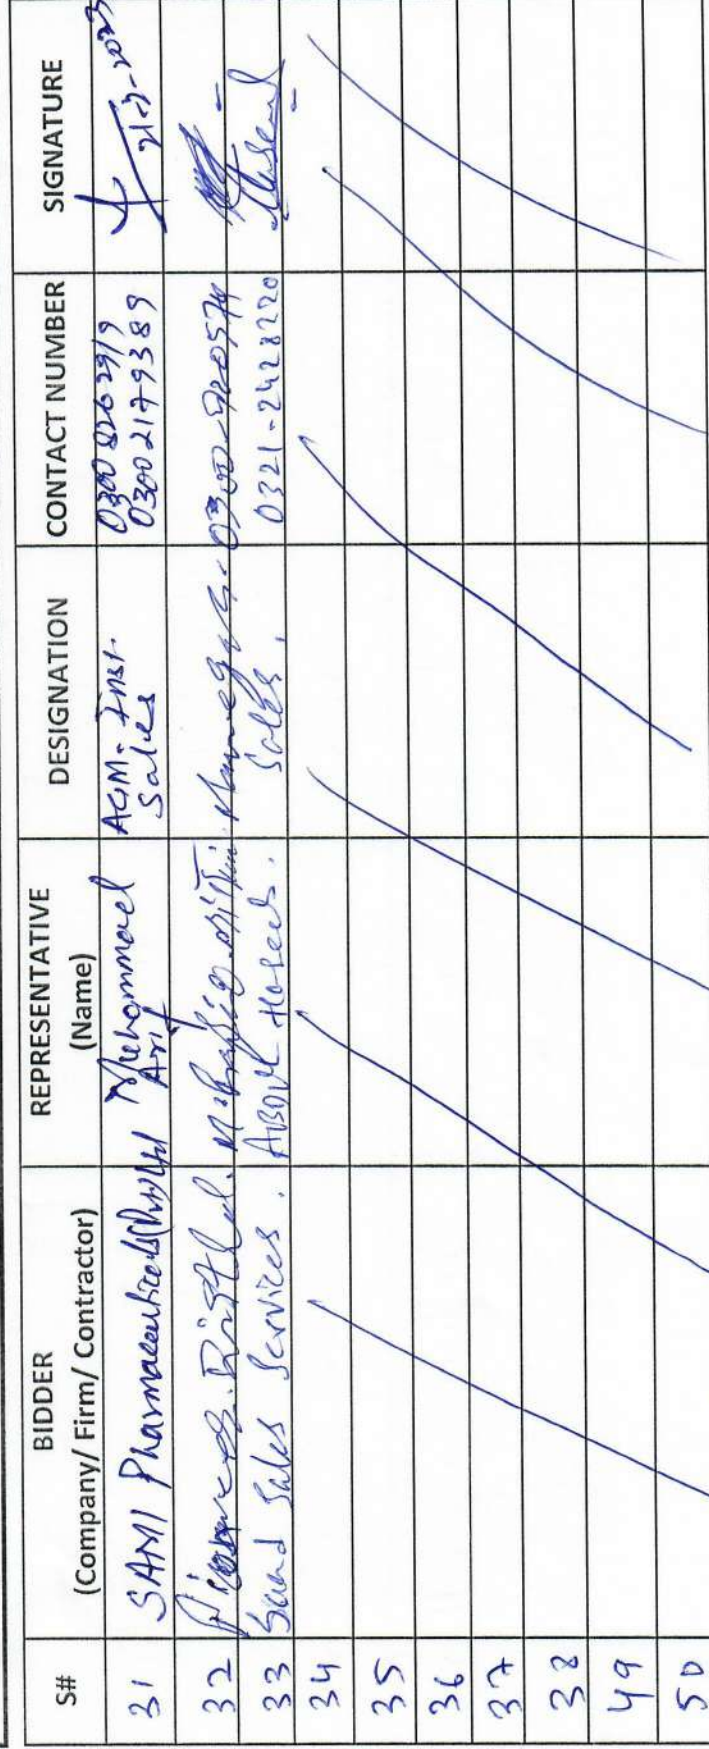 S# BIDDER (Company/ Firm/ Contractor) REPRESENTATIVE (Name) DESIGNATION CONTACT NUMBER SIGNATURE
31 SAMI Pharmaceuticals (Pvt) Ltd Muhammad Arif AGM- Inst. Sales 0300 8262919 03002179389 21-3-2023
32 Manager 0300-
33 Saand Sales Services. Abdul Haseeb. Sales, 0321-2428220
34
35
36
37
38
49
50